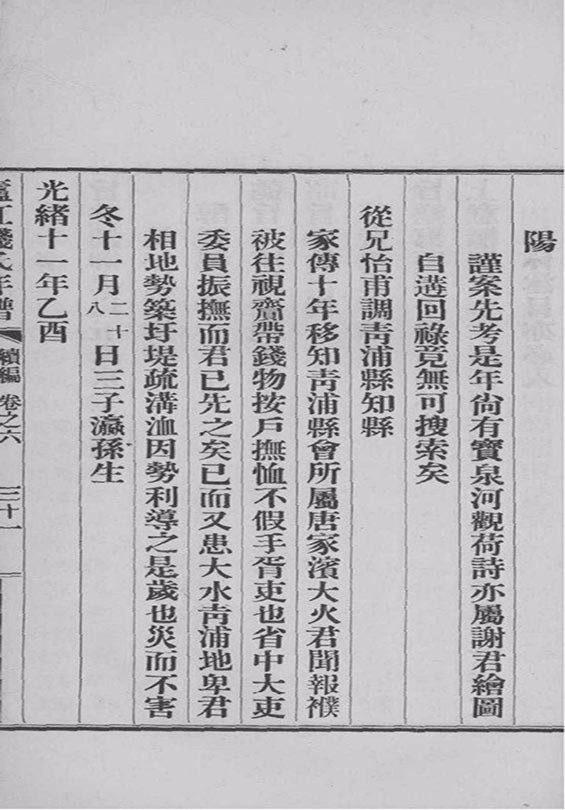 陽
謹案先考是年尙有寶泉河觀荷詩亦屬謝君繪圖
自遘回祿竟無可搜索矣
從兄怡甫調靑浦縣知縣
家傳十年移知靑浦縣會所屬唐家濱大火君聞報襆
被往視齎帶錢物按戶撫恤不假手胥吏也省中大吏
委員振撫而君已先之矣已而又患大水靑浦地卑君
相地勢築圩堤疏溝洫因勢利導之是歲也災而不害
冬十一月二十八日三子瀛孫生
光緒十一年乙酉
廬江錢氏年譜 續編 卷之六 三十一